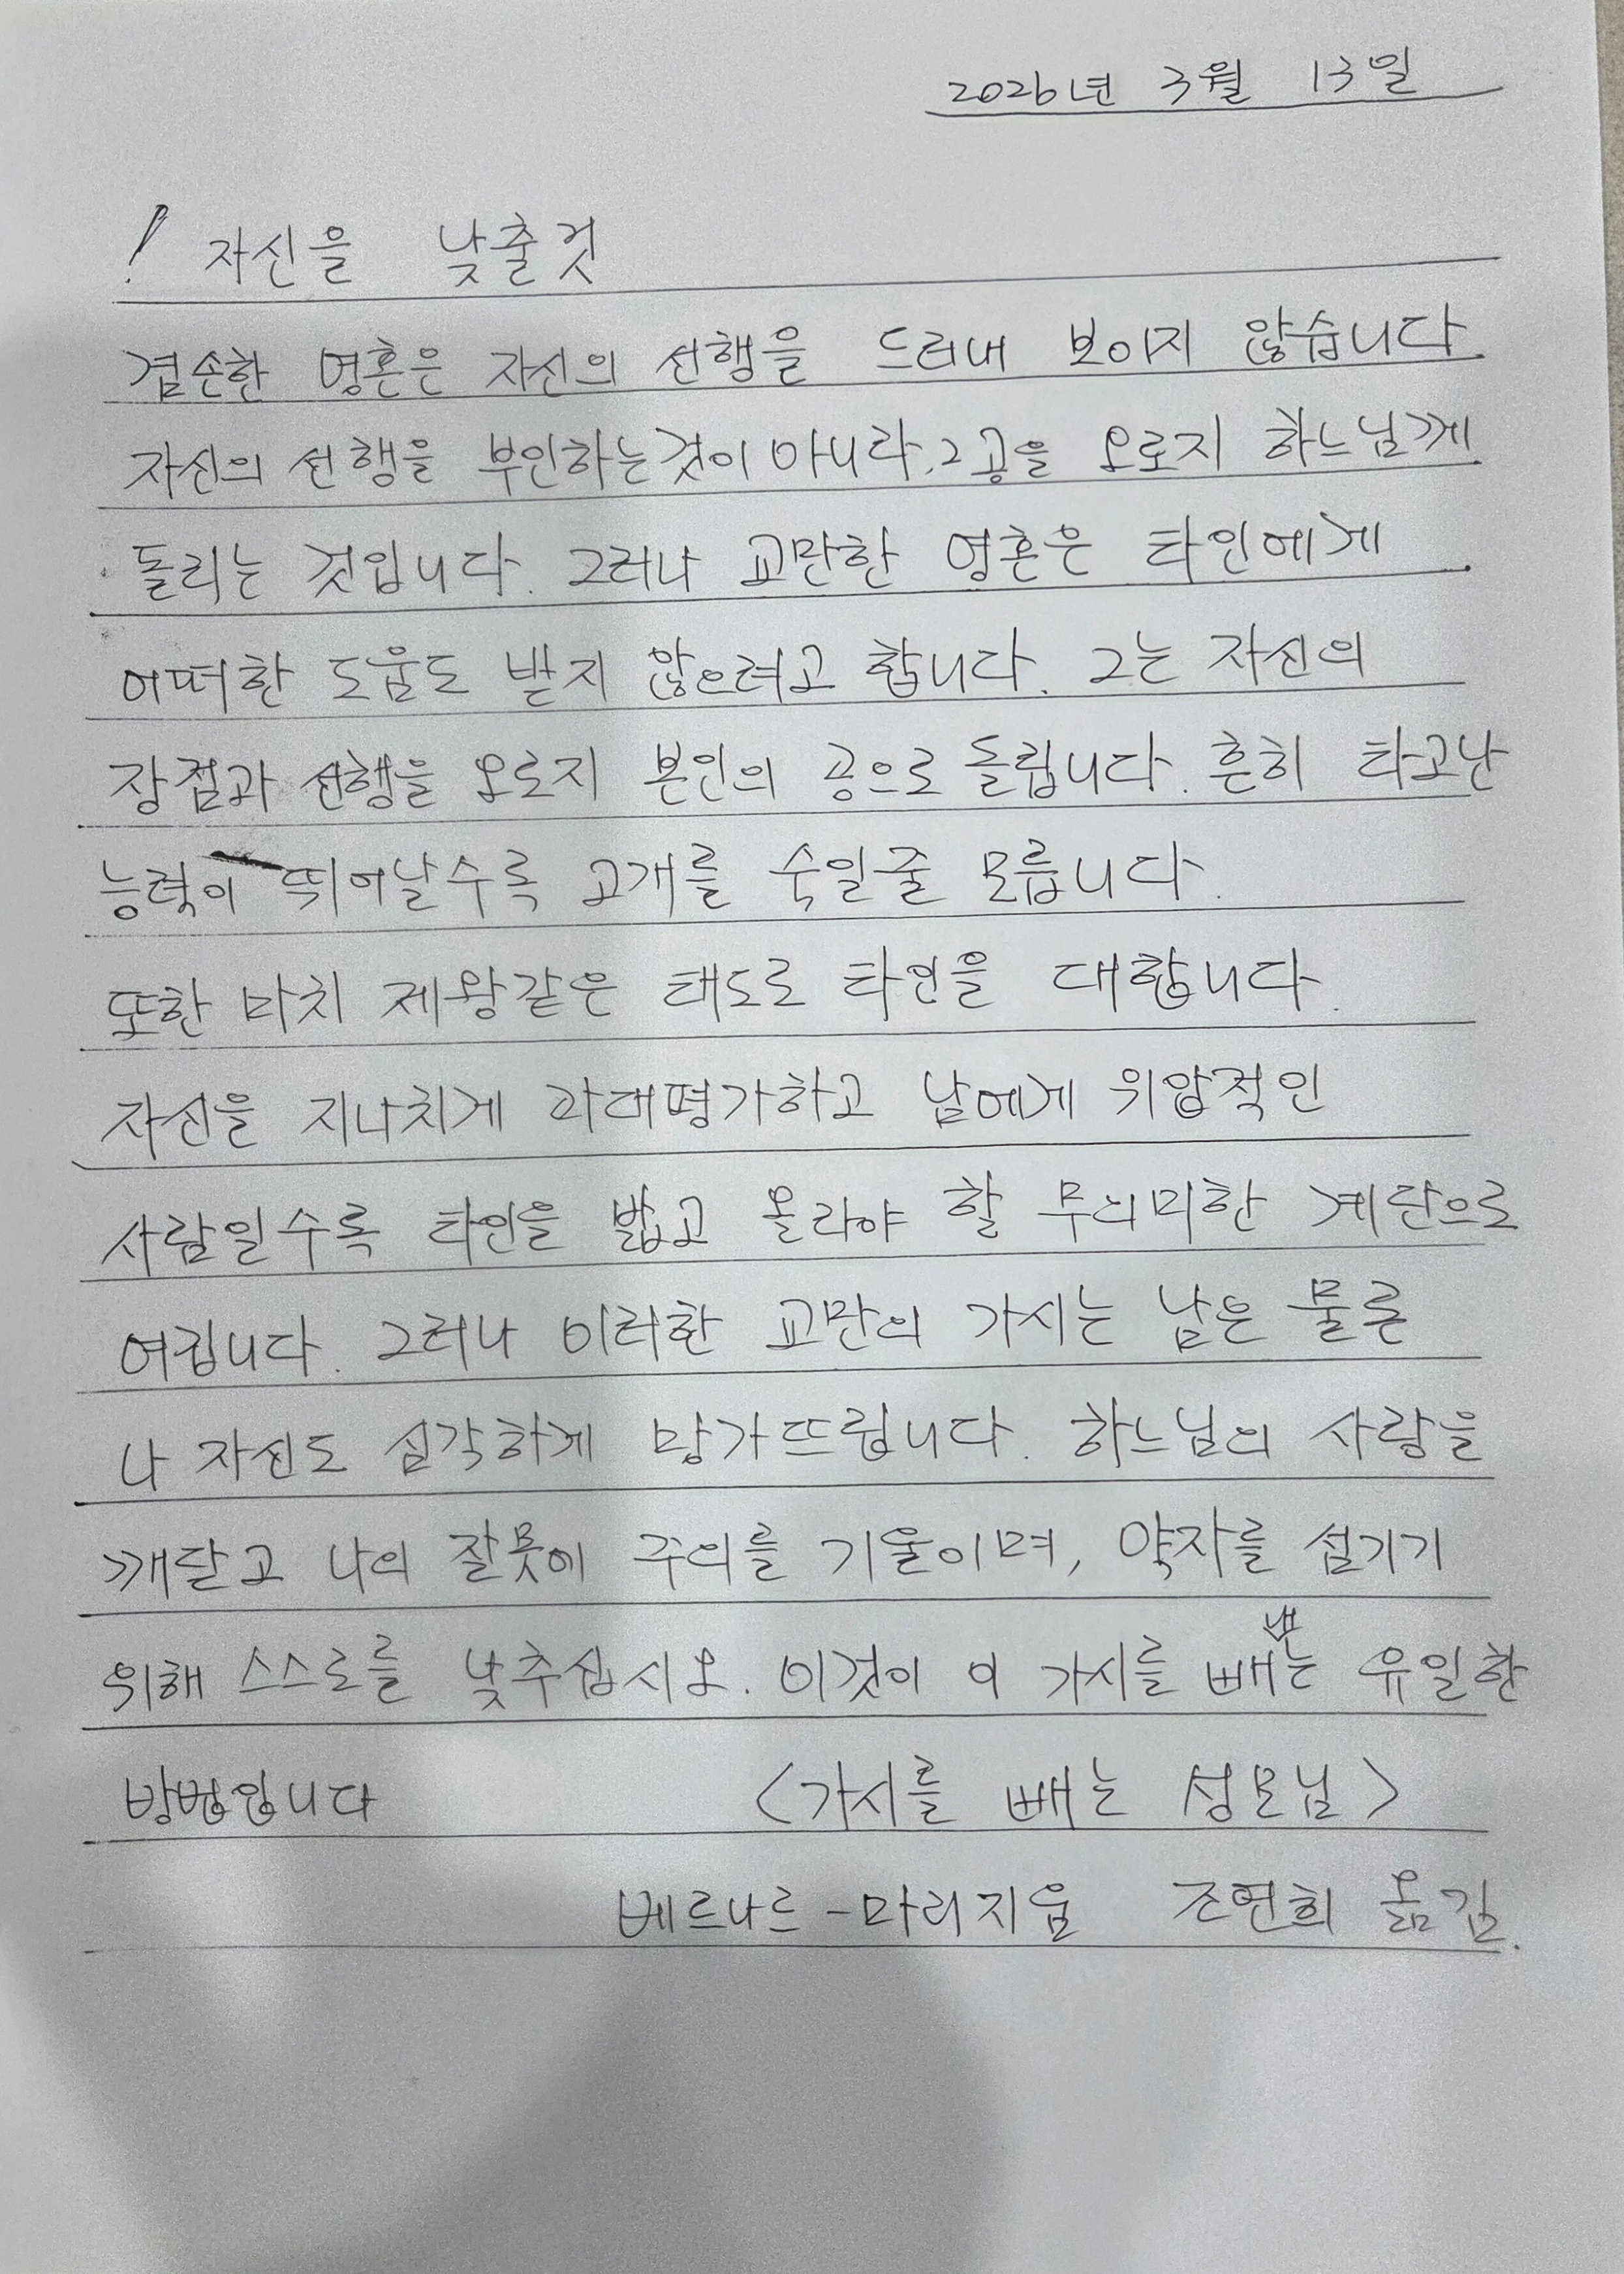 2026년 3월 13일
! 자신을 낮출것
겸손한 영혼은 자신의 선행을 드러내 보이지 않습니다.
자신의 선행을 부인하는것이 아니라, 그 공을 오로지 하느님께
돌리는 것입니다. 그러나 교만한 영혼은 타인에게
어떠한 도움도 받지 않으려고 합니다. 그는 자신의
장점과 선행을 오로지 본인의 공으로 돌립니다. 흔히 타고난
능력이 뛰어날수록 고개를 숙일줄 모릅니다.
또한 마치 제왕같은 태도로 타인을 대합니다.
자신을 지나치게 과대평가하고 남에게 위압적인
사람일수록 타인을 밟고 올라야 할 무의미한 계단으로
여깁니다. 그러나 이러한 교만의 가시는 남은 물론
나 자신도 심각하게 망가뜨립니다. 하느님의 사랑을
깨닫고 나의 잘못에 주의를 기울이며, 약자를 섬기기
위해 스스로를 낮추십시오. 이것이 이 가시를 빼내는 유일한
방법입니다 <가시를 빼는 성모님>
베르나르-마리지음 조연희 옮김.